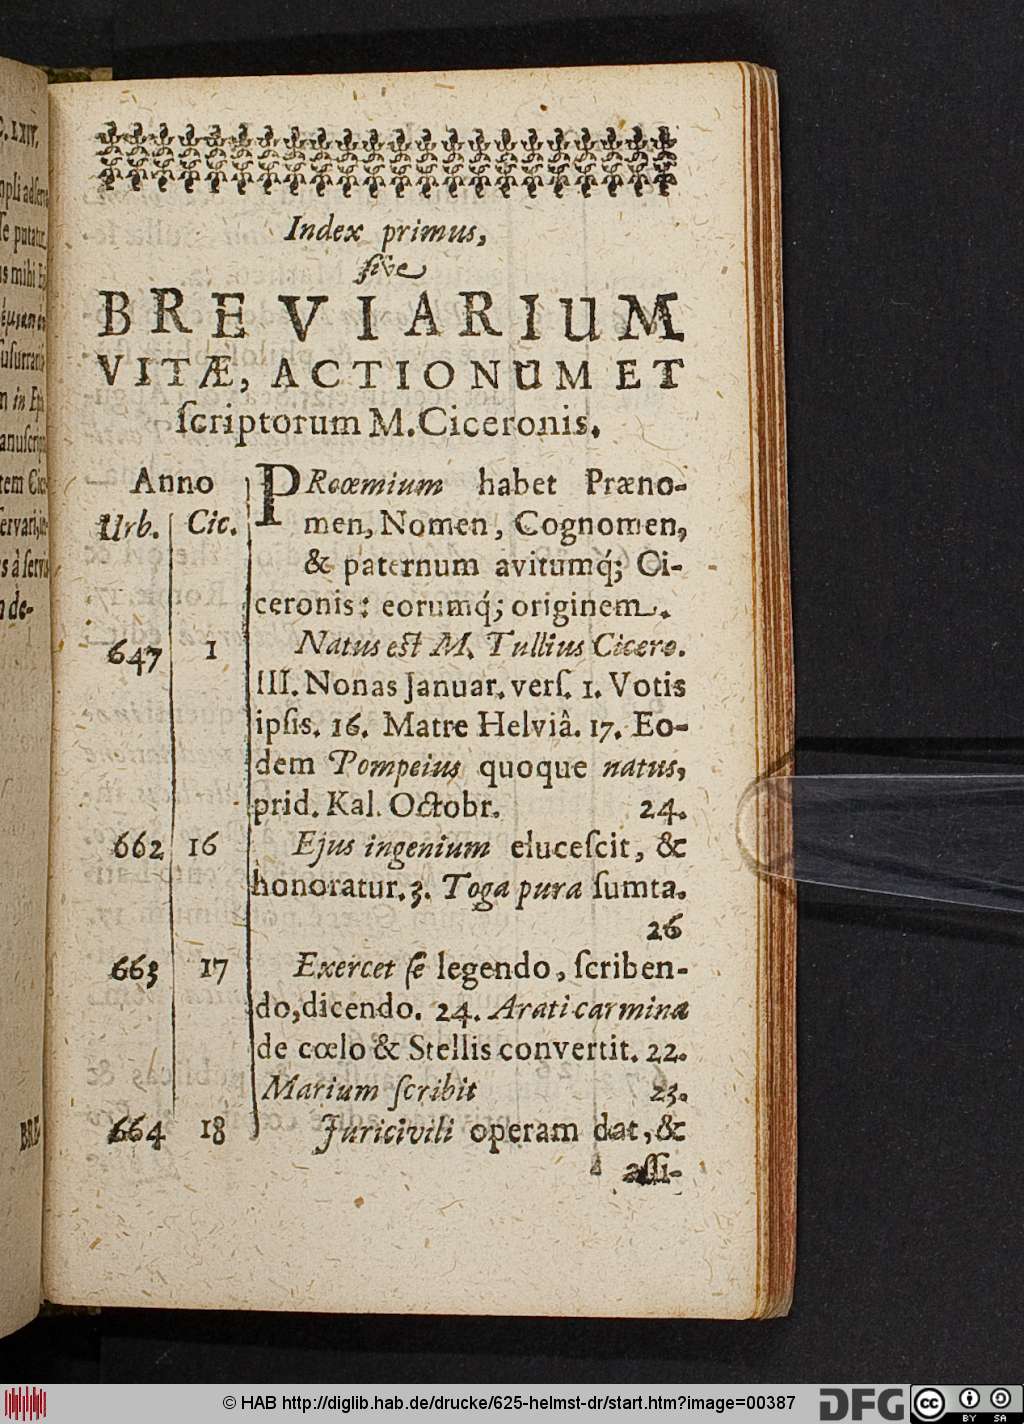 Index primus,
ſive
BREVIARIUM
VITÆ, ACTIONUM ET
ſcriptorum M. Ciceronis.
Anno
Urb. Cic.
PRoœmium habet Præno-
men, Nomen, Cognomen,
& paternum avitumq́; Ci-
ceronis: eorumq́; originem.
647 1 Natus eſt M. Tullius Cicero.
III. Nonas Januar. verſ. 1. Votis
ipſis. 16. Matre Helviâ. 17. Eo-
dem Pompeius quoque natus,
prid. Kal. Octobr. 24.
662 16 Ejus ingenium eluceſcit, &
honoratur. 3. Toga pura ſumta.
26
663 17 Exercet ſe legendo, ſcriben-
do, dicendo. 24. Arati carmina
de cœlo & Stellis convertit. 22.
Marium ſcribit 23.
664 18 Juri civili operam dat, &
aſſi-
C. LXIV.
BRE
© HAB http://diglib.hab.de/drucke/625-helmst-dr/start.htm?image=00387
DFG
cc BY SA